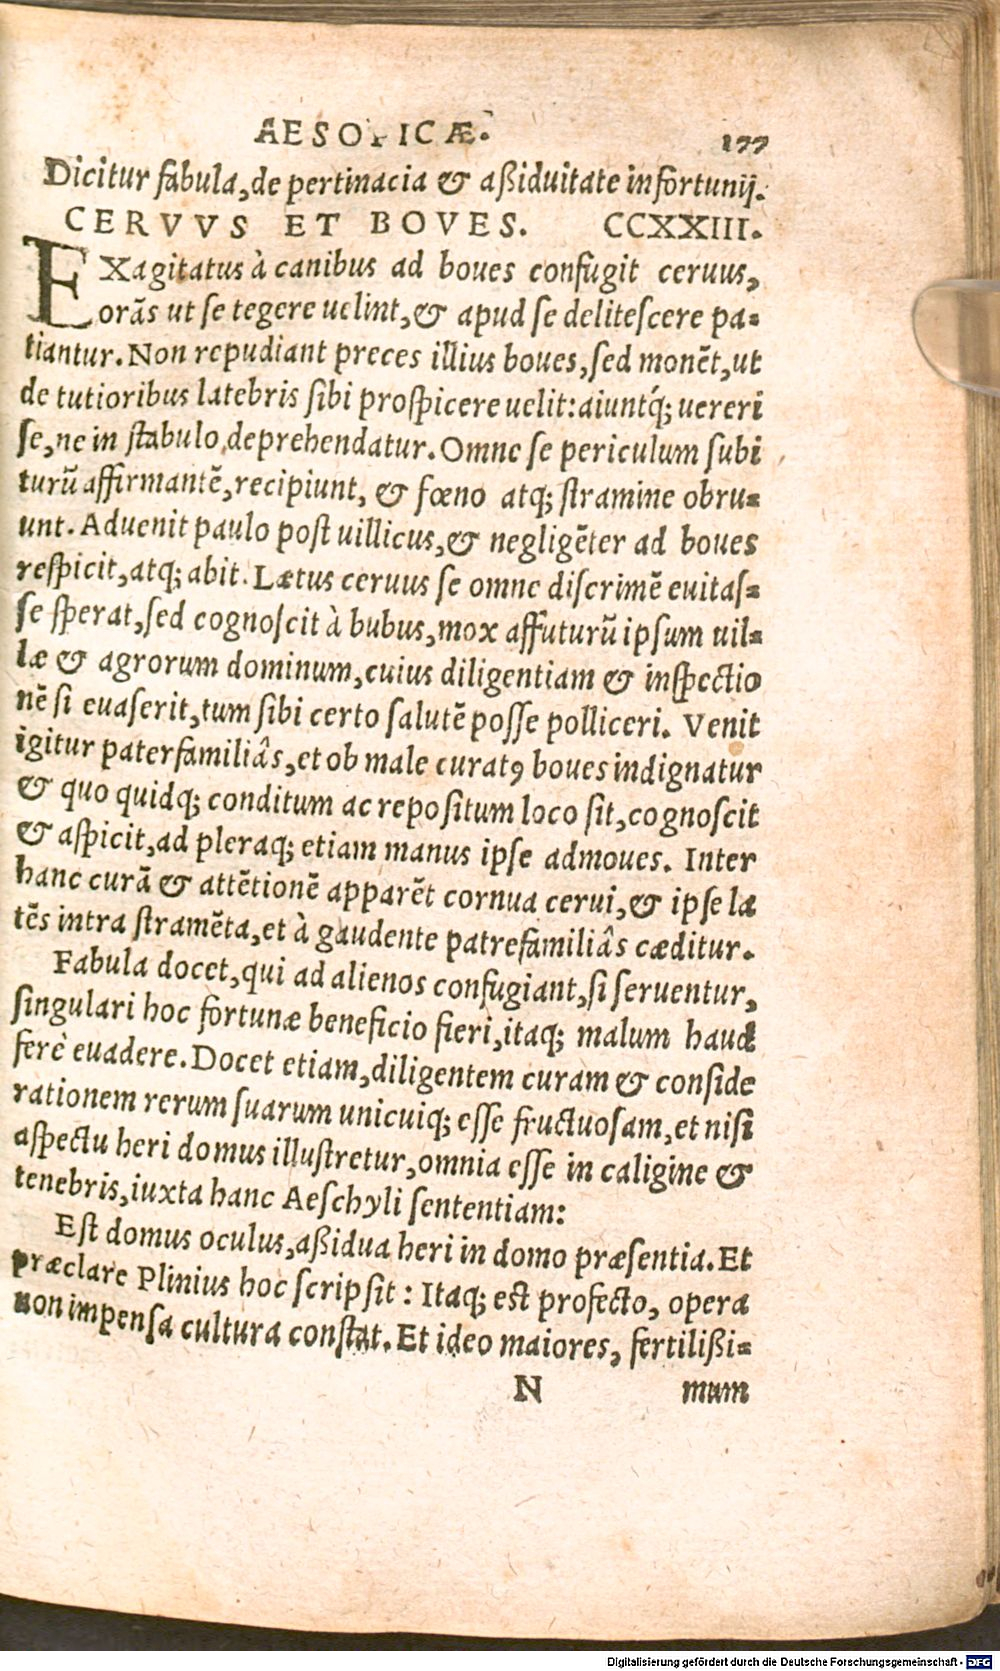 AESOPICÆ. 177
Dicitur fabula, de pertinacia & aßiduitate infortunij.
CERVVS ET BOVES. CCXXIII.
EXagitatus à canibus ad boues confugit ceruus,
orãs ut se tegere uelint, & apud se delitescere pa-
tiantur. Non repudiant preces illius boues, sed monẽt, ut
de tutioribus latebris sibi prospicere uelit: aiuntq́; uereri
se, ne in stabulo deprehendatur. Omne se periculum subi
turũ affirmantẽ, recipiunt, & fœno atq; stramine obru-
unt. Aduenit paulo post uillicus, & negligẽter ad boues
respicit, atq; abit. Lætus ceruus se omne discrimẽ euitas-
se sperat, sed cognoscit à bubus, mox affuturũ ipsum uil-
læ & agrorum dominum, cuius diligentiam & inspectio
nẽ si euaserit, tum sibi certo salutẽ posse polliceri. Venit
igitur paterfamiliâs, et ob male curatꝰ boues indignatur
& quo quidq; conditum ac repositum loco sit, cognoscit
& aspicit, ad pleraq; etiam manus ipse admoues. Inter
hanc curã & attẽtionẽ apparẽt cornua cerui, & ipse la
tẽs intra stramẽta, et à gaudente patrefamiliâs cæditur.
Fabula docet, qui ad alienos confugiant, si seruentur,
singulari hoc fortunæ beneficio fieri, itaq; malum haud
ferè euadere. Docet etiam, diligentem curam & conside
rationem rerum suarum unicuiq; esse fructuosam, et nisi
aspectu heri domus illustretur, omnia esse in caligine &
tenebris, iuxta hanc Aeschyli sententiam:
Est domus oculus, aßidua heri in domo præsentia. Et
præclare Plinius hoc scripsit: Itaq; est profecto, opera
non impensa cultura constat. Et ideo maiores, fertilißi-
N mum
Digitalisierung gefördert durch die Deutsche Forschungsgemeinschaft - DFG